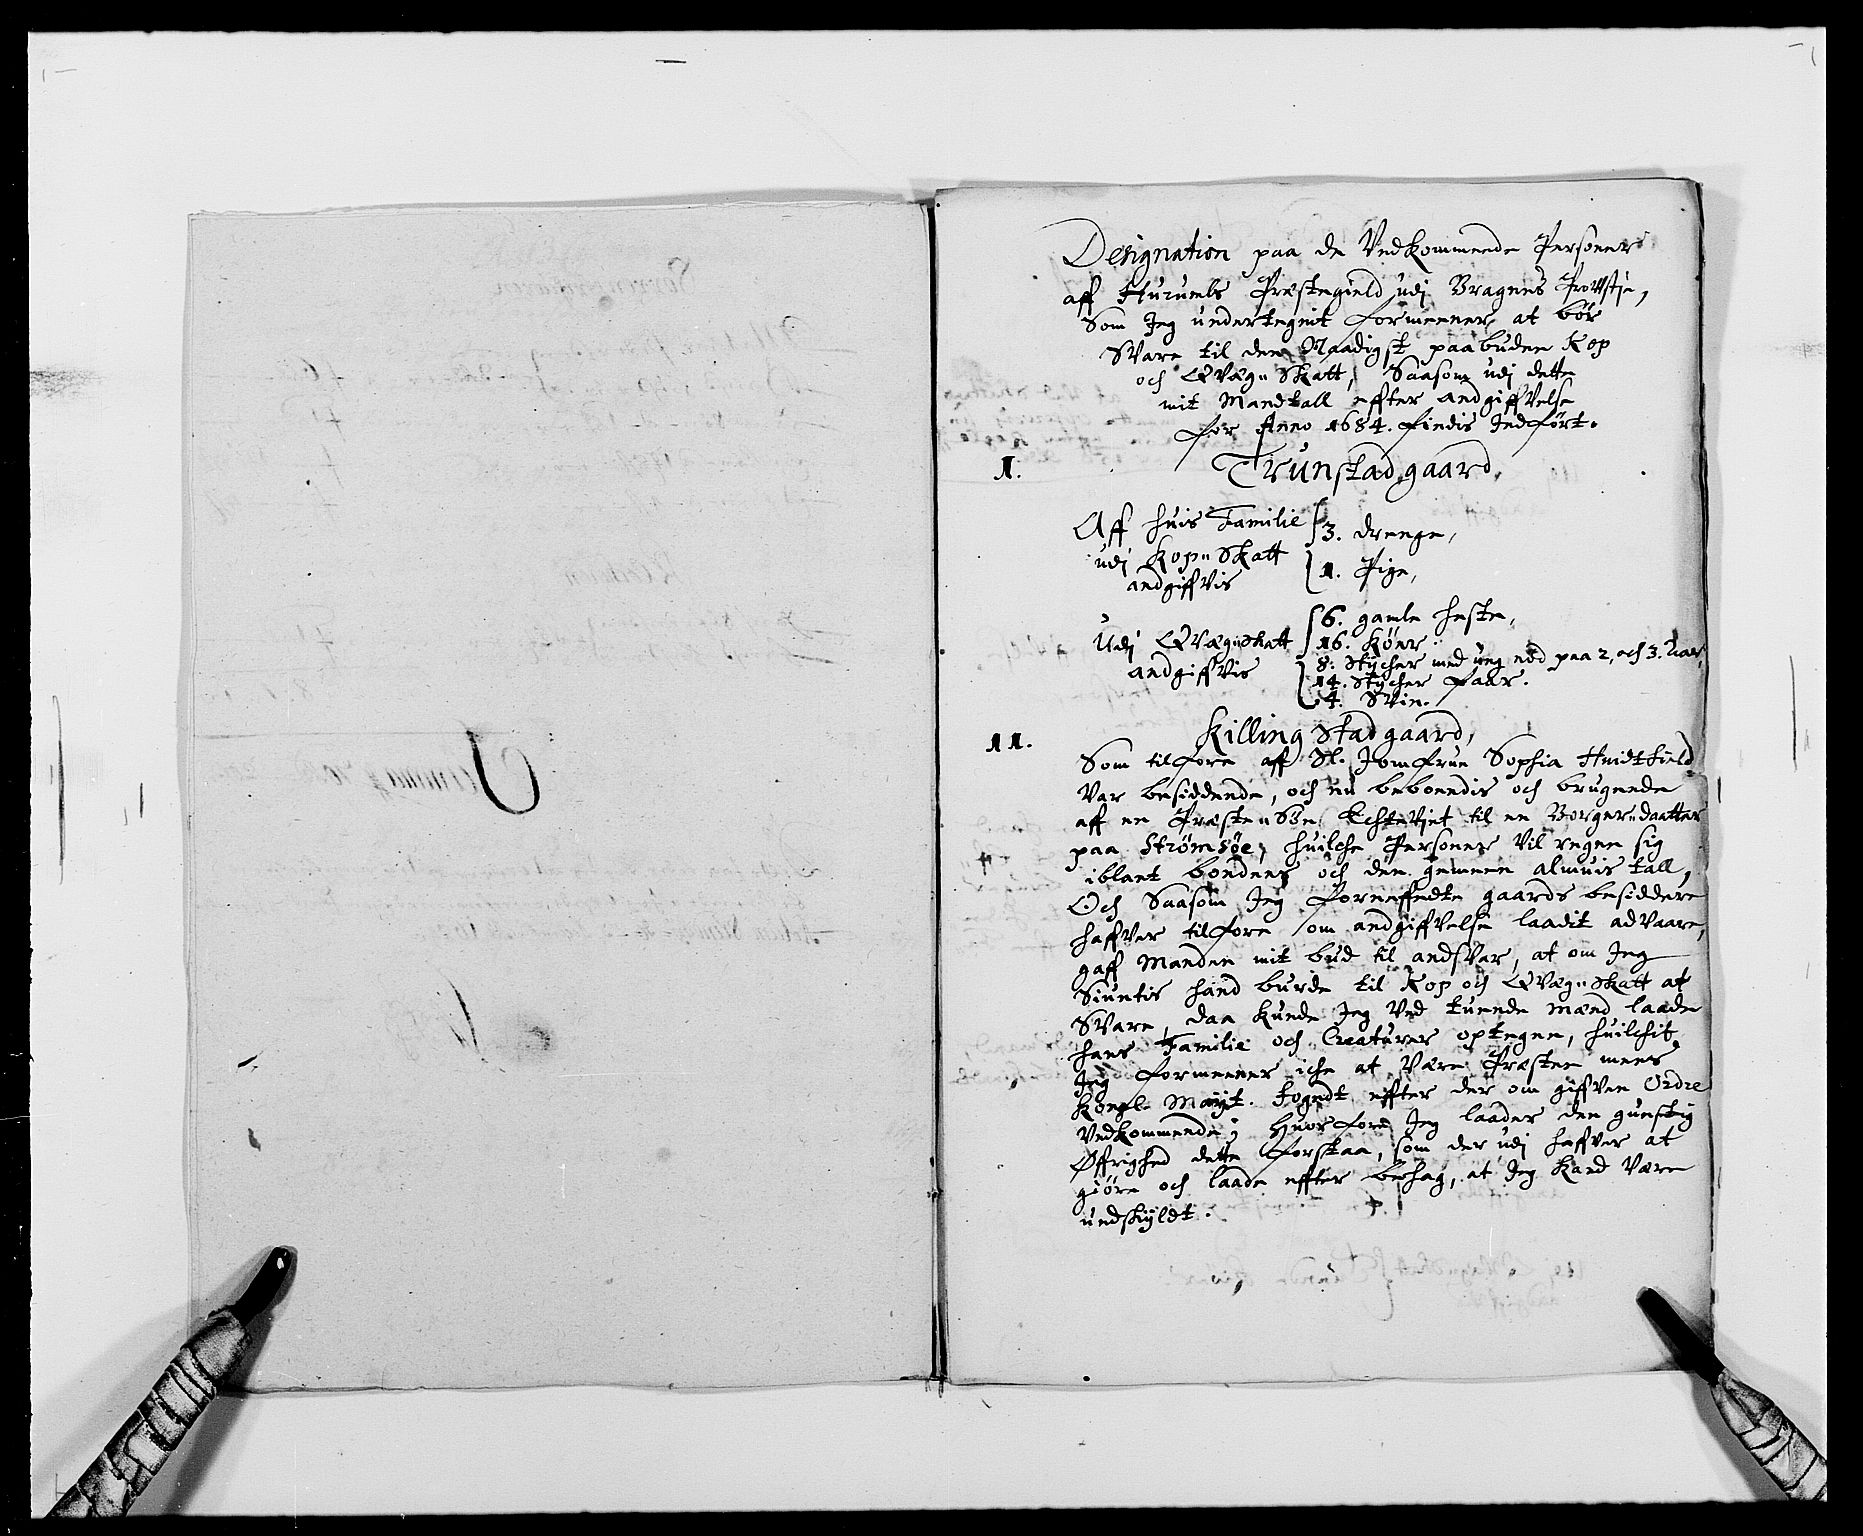 Designation paa de Vedkommende Personer
aff Hurumbs Præstegield udj Bragnes Prowstje,
Som Jeg undertegnit formeener at bør
Svare til den Naadigst paabuden Kop
och Qvæg= Skatt, Saasom udj dette
mit Mandtall effter andgiffvelse
for Anno 1684. findis Jndført.
1. Trunstad gaard,
Aff huis Familie 3. drenge,
udj Kop= Skatt
andgiffvis 1. Pige,
6. gamle heste,
Udj Qvæg=Skatt 16. Køer
andgiffvis 8. Stycher med ung nød paa 2, och 3. Aar,
14. Stycher Faar.
4. Svin.
11. Killingstad gaard,
Som tilfore aff Sl. Jomfrue Sophia Huidtfield
Var besiddende, och nu beboendis och brugende
aff en Præste=Søn Echtevjet til en Borger=daatter
paa Strømsøe, huilche Personer Vil regne sig
iblant bønders och den gemeen almuis tall,
Och Saasom Jeg forneffndte gaards besiddere
haffver tilfore om andgiffvelse laadit advaare,
gaff Manden mit bud til andsvar, at om Jeg
Siuntis hand burde til Kop och Qvæg=Skatt at
Svare, daa kunde Jeg Ved tuende Mænd laade
hans Familie och Creaturer optegne, huilchit
Jeg formeener iche at Være Præsten meer
Kongl. Mayt. fogedt effter der om giffven Ordre
Vedkommende; Huorfore Jeg laader den gunstig
Øffrighed dette forstaa, som der udj haffver at
giøre och laade effter behag, at Jeg kand Være
undskyldt.